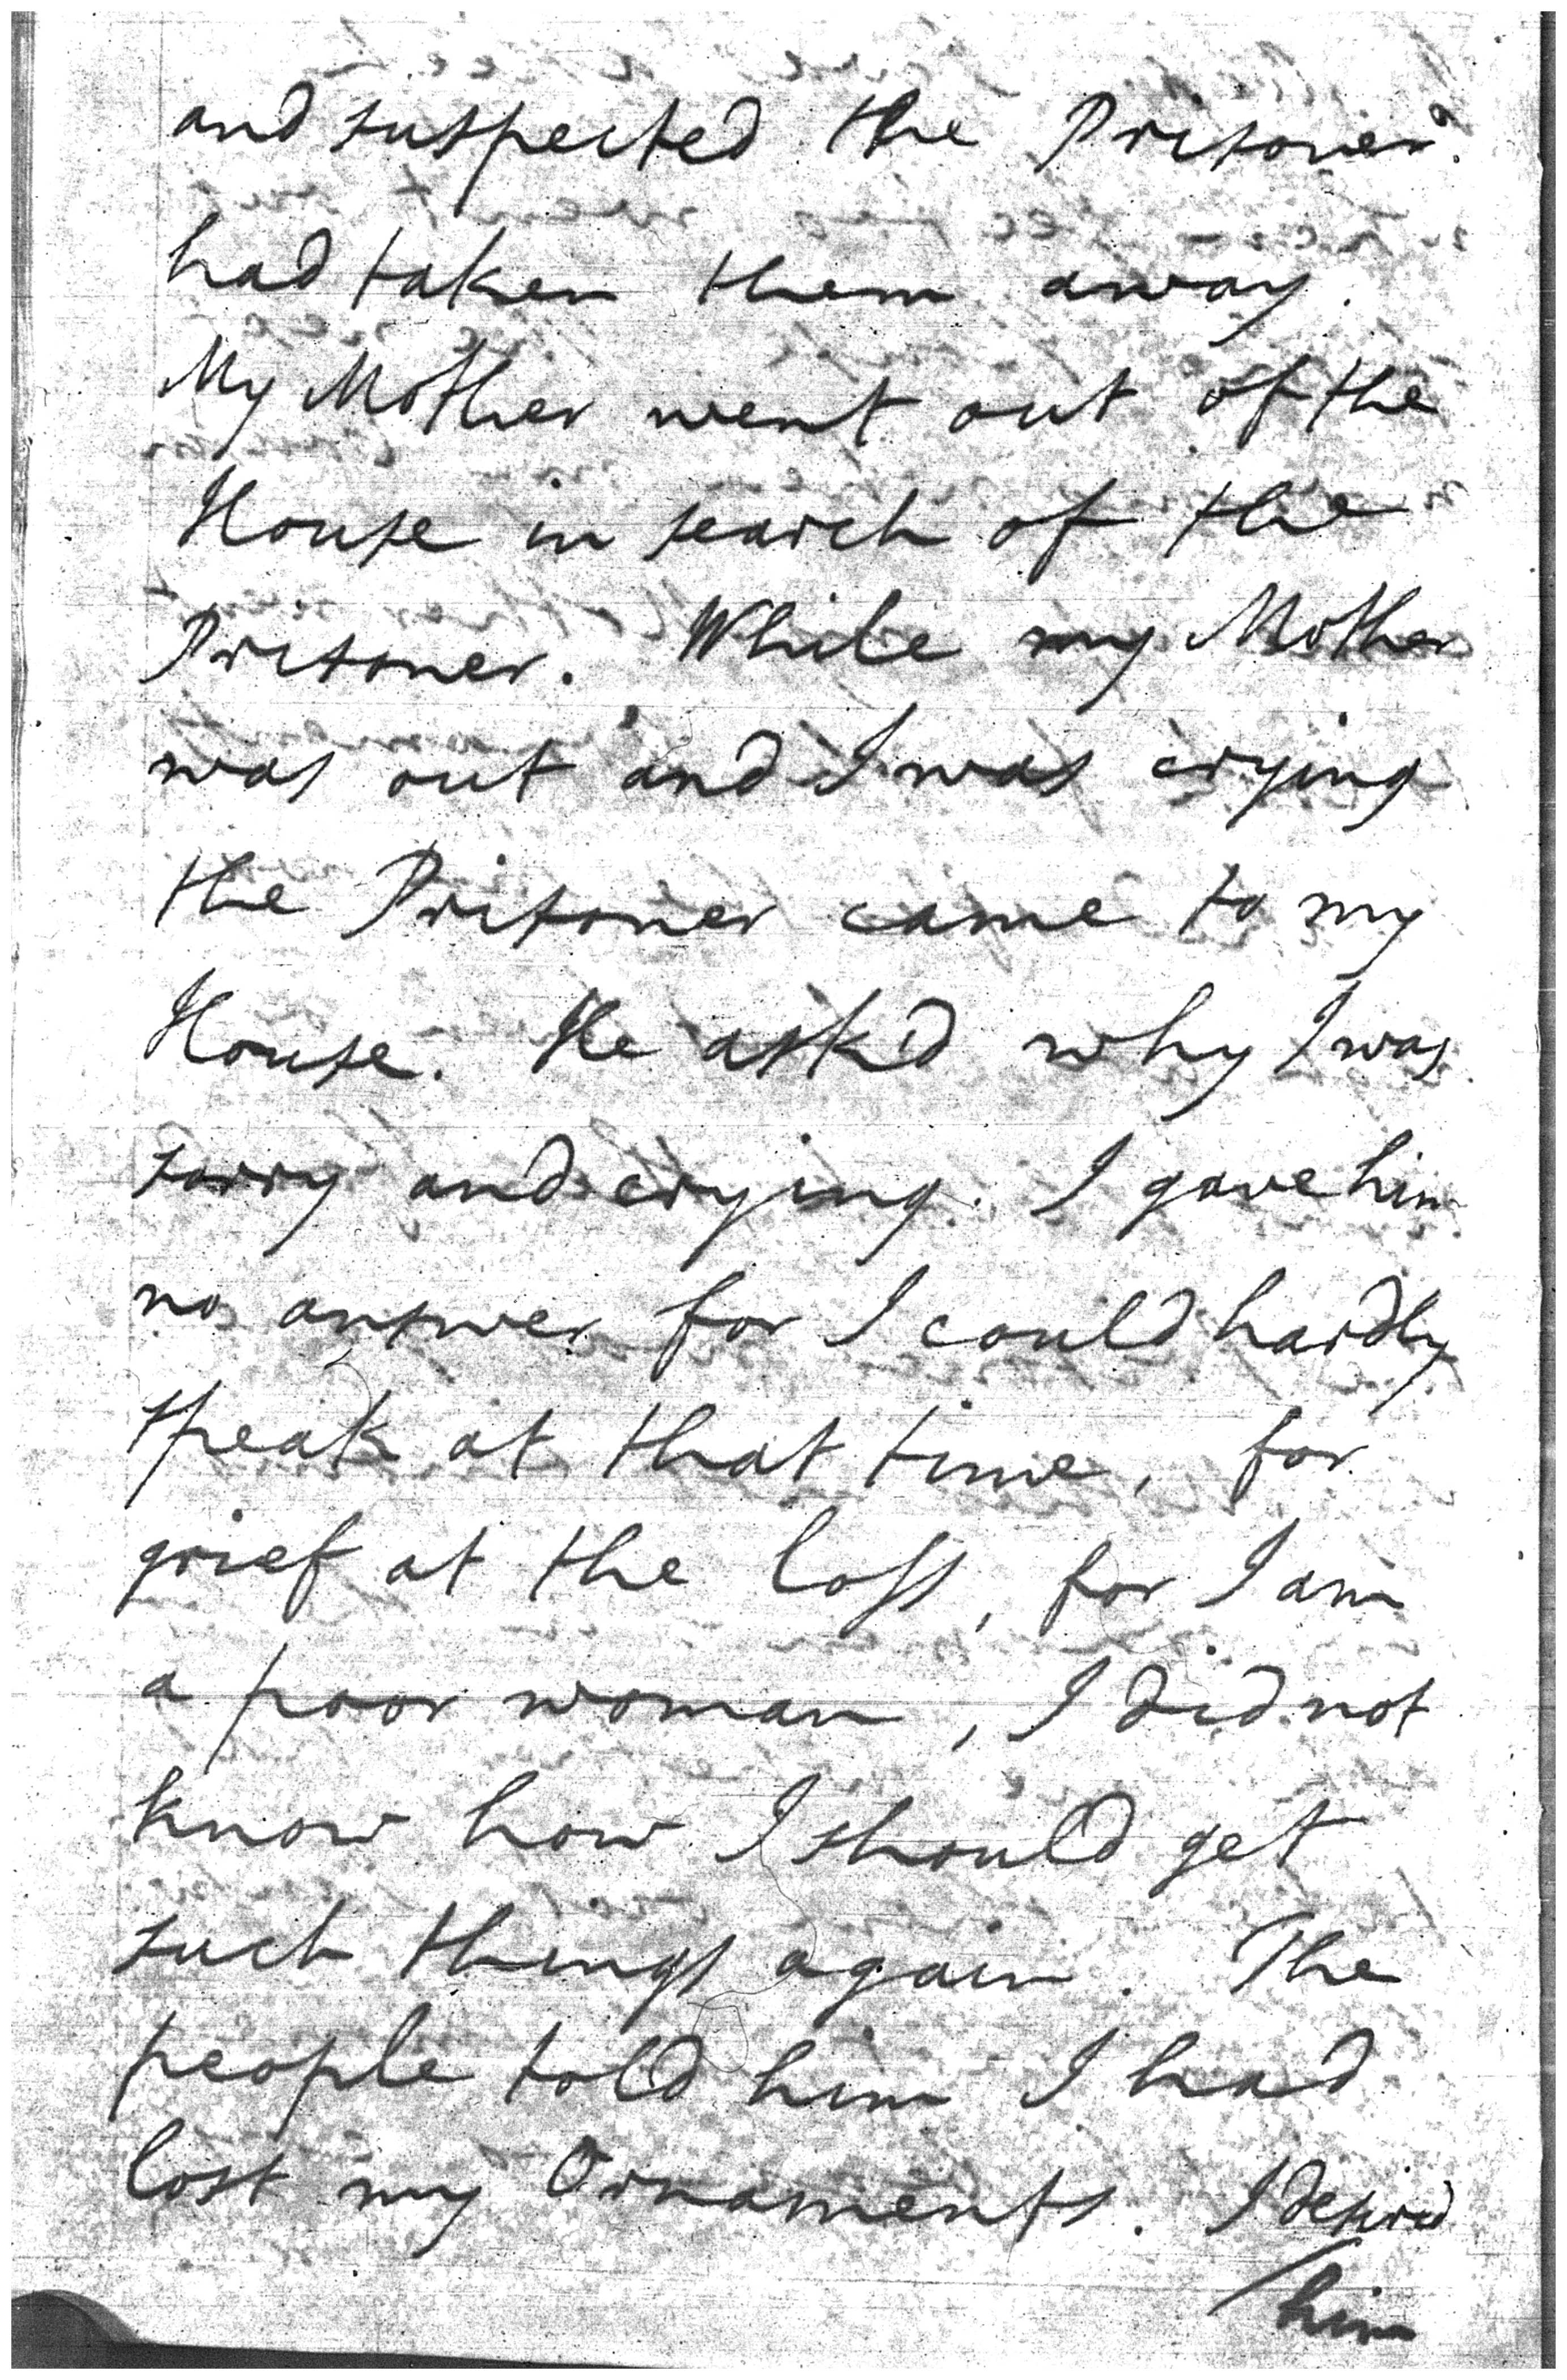 and suspected the Prisoner
had taken them away.
My Mother went out of the
House in search of the
Prisoner. While my Mother
was out and I was crying
the Prisoner came to my
House. He ask'd why I was
sorry and crying. I gave him
no answer for I could hardly
speak at that time, for
grief at the loss, for I am
a poor woman, I did not
know how I should get
such things again. The
people told him I had
lost my Ornaments. I desired
him